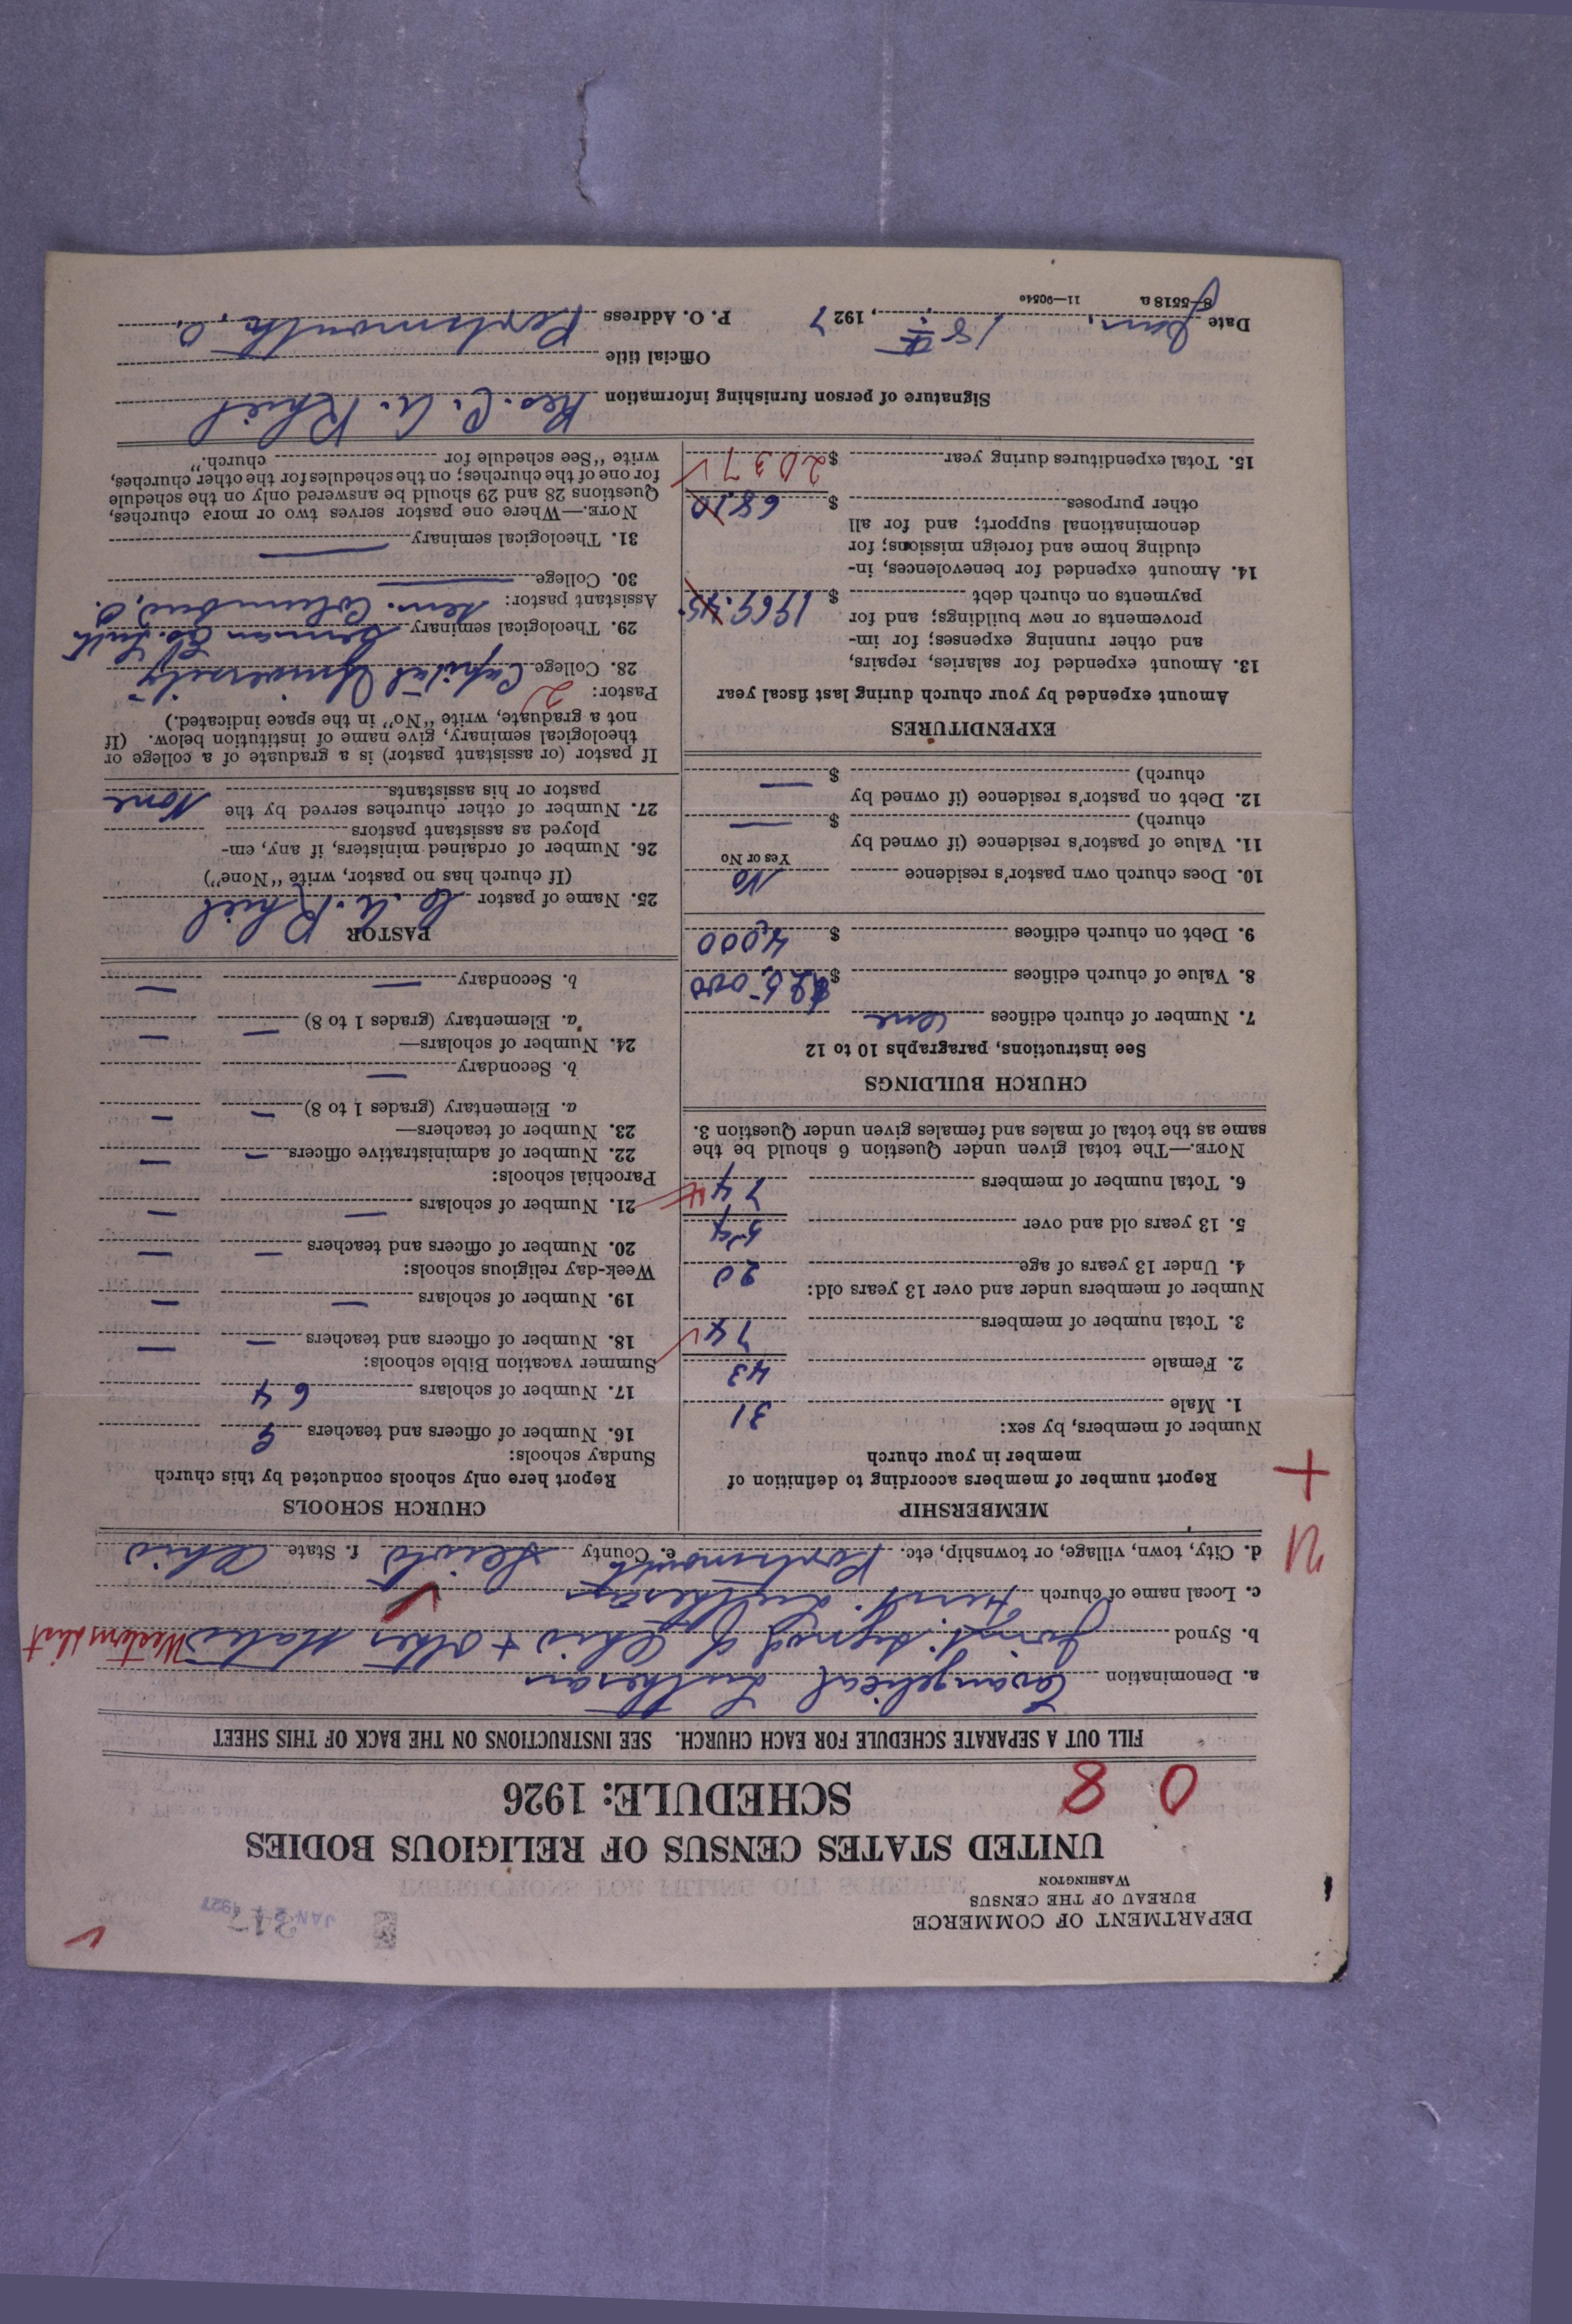 DEPARTMENT OF COMMERCE
BUREAU OF THE CENSUS
WASHINGTON
317
JAN 24 1927
UNITED STATES CENSUS OF RELIGIOUS BODIES
SCHEDULE: 1926
0 8
FILL OUT A SEPARATE SCHEDULE FOR EACH CHURCH. SEE INSTRUCTIONS ON THE BACK OF THIS SHEET
a. Denomination Evangelical Lutheran
b. Synod Joint Synod of Ohio + Other States Western dist
c. Local name of church First Lutheran
d. City, town, village, or township, etc. Portsmouth e. County Scioto f. State Ohio
MEMBERSHIP
Report number of members according to definition of
member in your church
Number of members, by sex:
1. Male 31
2. Female 43
3. Total number of members 74
Number of members under and over 13 years old:
4. Under 13 years of age 20
5. 13 years old and over 54
6. Total number of members 74
NOTE.—The total given under Question 6 should be the
same as the total of males and females given under Question 3.
CHURCH BUILDINGS
See instructions, paragraphs 10 to 12
7. Number of church edifices One
8. Value of church edifices $ 25,000
9. Debt on church edifices $ 4,000
10. Does church own pastor's residence No
Yes or No
11. Value of pastor's residence (if owned by
church) $ —
12. Debt on pastor's residence (if owned by
church) $ —
EXPENDITURES
Amount expended by your church during last fiscal year
13. Amount expended for salaries, repairs,
and other running expenses; for im-
provements or new buildings; and for
payments on church debt $ 1969.45
14. Amount expended for benevolences, in-
cluding home and foreign missions; for
denominational support; and for all
other purposes $ 68.10
15. Total expenditures during year $ 2037
CHURCH SCHOOLS
Report here only schools conducted by this church
Sunday schools:
16. Number of officers and teachers 9
17. Number of scholars 64
Summer vacation Bible schools:
18. Number of officers and teachers — —
19. Number of scholars — —
Week-day religious schools:
20. Number of officers and teachers — —
21. Number of scholars — —
Parochial schools:
22. Number of administrative officers — —
23. Number of teachers—
a. Elementary (grades 1 to 8) — —
b. Secondary —
24. Number of scholars—
a. Elementary (grades 1 to 8) — —
b. Secondary — —
PASTOR
25. Name of pastor C. A. Rhiel
(If church has no pastor, write "None")
26. Number of ordained ministers, if any, em-
ployed as assistant pastors
27. Number of other churches served by the
pastor or his assistants None
If pastor (or assistant pastor) is a graduate of a college or
theological seminary, give name of institution below. (If
not a graduate, write "No" in the space indicated.)
Pastor: 2
28. College Capital University
29. Theological seminary German Ev. Luth
Sem. Columbus, O.
Assistant pastor:
30. College —
31. Theological seminary —
NOTE.—Where one pastor serves two or more churches,
Questions 28 and 29 should be answered only on the schedule
for one of the churches; on the schedules for the other churches,
write "See schedule for church."
Signature of person furnishing information Rev. C. A. Rhiel
Official title
Date Jan. 18th, 1927 P. O. Address Portsmouth, O.
8-5518 a 11—9054e